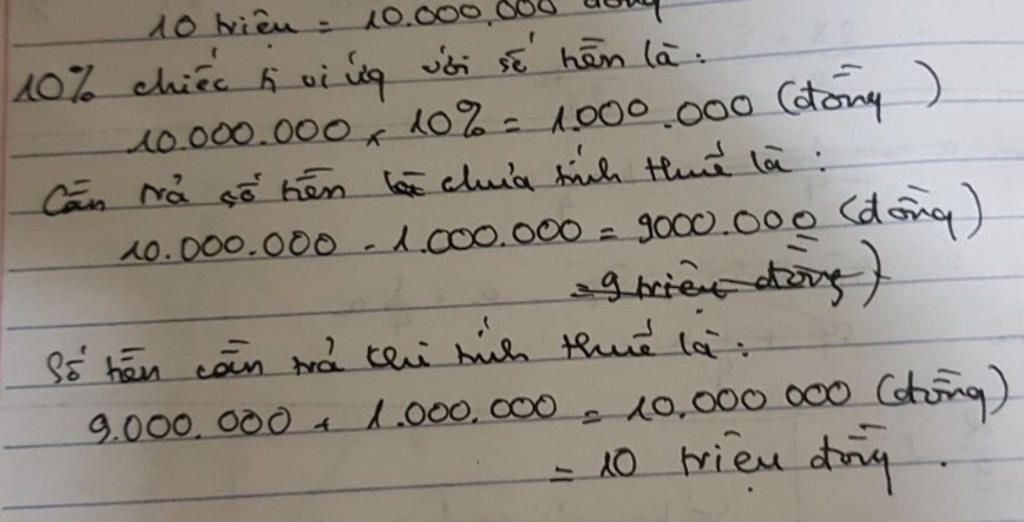 10 triệu = 10.000.000 đồng
10% chiếc ti vi ứng với số tiền là:
10.000.000 x 10% = 1.000.000 (đồng)
Cần trả số tiền chưa tính thuế là:
10.000.000 - 1.000.000 = 9000.000 (đồng)
= 9 triệu đồng)
Số tiền cần trả khi tính thuế là:
9.000.000 + 1.000.000 = 10.000 000 (đồng)
= 10 triệu đồng.